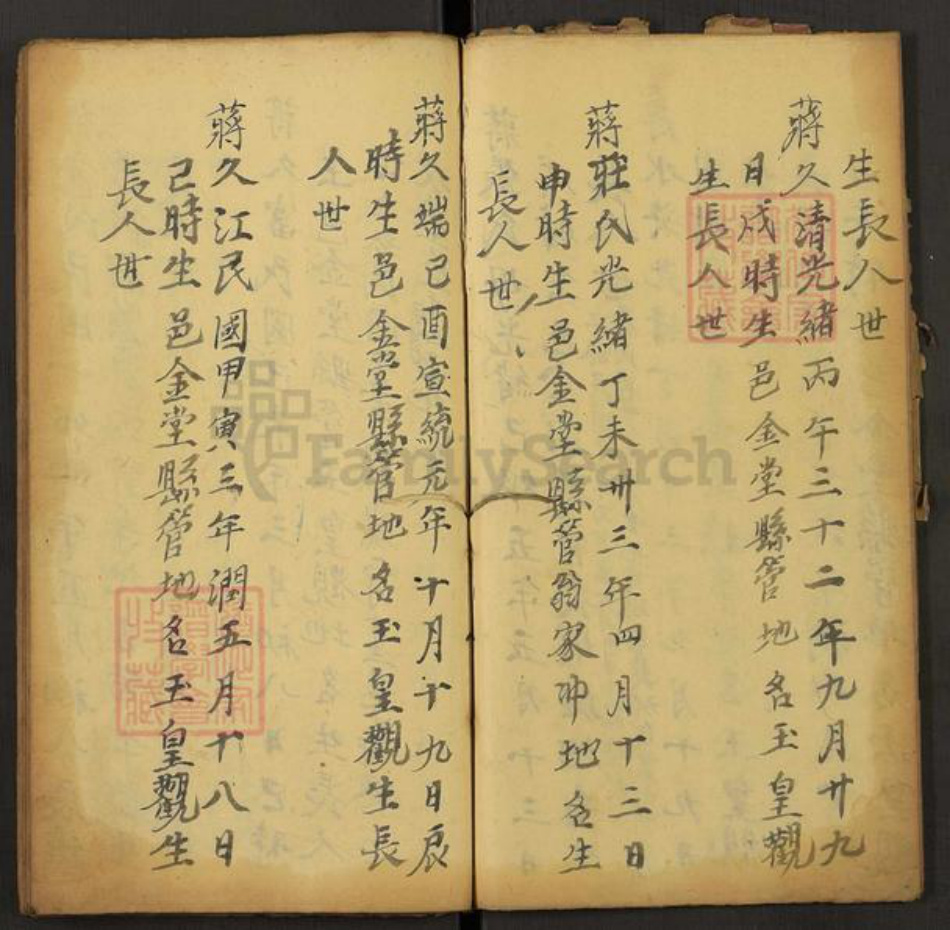 生長人世
蔣久清光緒丙午三十二年九月廿九
日戍時生邑金堂縣管地名玉皇觀
生長人世
蔣莊氏光緒丁未卅三年四月十三日
申時生邑金堂縣管翁家冲地名生
長人世
蔣久端己酉宣統元年十月十九日辰
時生邑金堂縣管地名玉皇觀生長
人世
蔣久江民國甲寅三年潤五月十八日
己時生邑金堂縣管地名玉皇觀生
長人世
FamilySearch